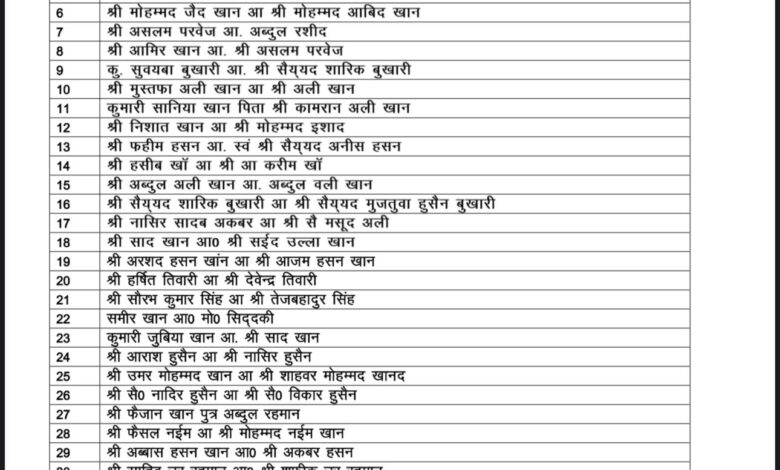 6 श्री मोहम्मद जैद खान आ श्री मोहम्मद आबिद खान
7 श्री असलम परवेज आ. अब्दुल रशीद
8 श्री आमिर खान आ. श्री असलम परवेज
9 कु. सुवयबा बुखारी आ. श्री सैय्यद शारिक बुखारी
10 श्री मुस्तफा अली खान आ श्री अली खान
11 कुमारी सानिया खान पिता श्री कामरान अली खान
12 श्री निशात खान आ श्री मोहम्मद इशाद
13 श्री फहीम हसन आ. स्वं श्री सैय्यद अनीस हसन
14 श्री हसीब खॉ आ श्री आ करीम खॉ
15 श्री अब्दुल अली खान आ. अब्दुल वली खान
16 श्री सैय्यद शारिक बुखारी आ श्री सैय्यद मुजतुवा हुसैन बुखारी
17 श्री नासिर सादब अकबर आ श्री सै मसूद अली
18 श्री साद खान आ0 श्री सईद उल्ला खान
19 श्री अरशद हसन खांन आ श्री आजम हसन खान
20 श्री हर्षित तिवारी आ श्री देवेन्द्र तिवारी
21 श्री सौरभ कुमार सिंह आ श्री तेजबहादुर सिंह
22 समीर खान आ0 मो0 सिद्दकी
23 कुमारी जुबिया खान आ. श्री साद खान
24 श्री आराश हुसैन आ श्री नासिर हुसैन
25 श्री उमर मोहम्मद खान आ श्री शाहवर मोहम्मद खानद
26 श्री सै0 नादिर हुसैन आ श्री सै0 विकार हुसैन
27 श्री फैजान खान पुत्र अब्दुल रहमान
28 श्री फैसल नईम आ श्री मोहम्मद नईम खान
29 श्री अब्बास हसन खान आ0 श्री अकबर हसन